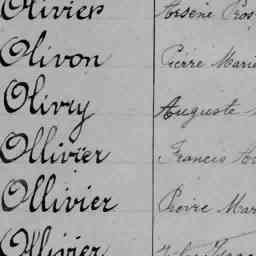 Olivier Arsène Pros
Olivon Pierre Marie
Olivry Auguste
Ollivier Francis
Ollivier Pierre Mar
Ollivier